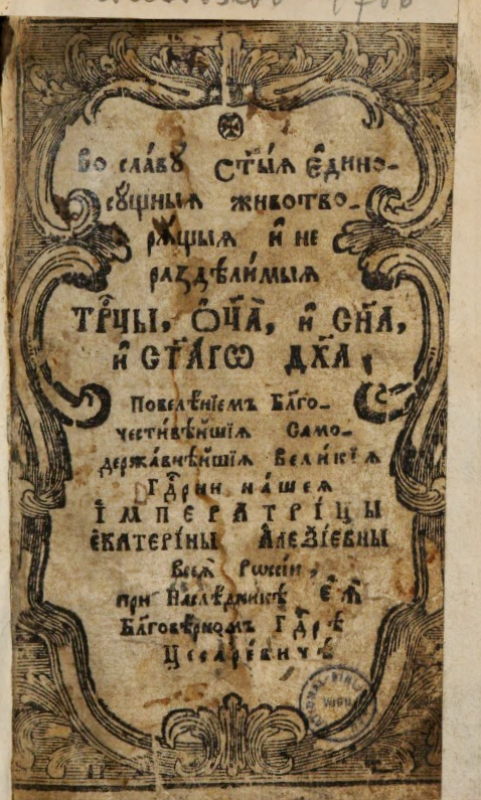 Во сла́вꙋ Ст҃ы́ѧ Є҆дино-
сꙋщныѧ животво-
рѧщыѧ и҆ не
раздѣли́мыѧ
Трⷪ҇цы, Ѻ҆ц҃а̀, и҆ Сн҃а,
и҆ Ст҃а́гѡ Дх҃а
Повелѣ́нїемъ Бл҃го-
чести́вѣйшїѧ Само-
держа́внѣйшїѧ Вели́кїѧ
Гдⷭ҇рни на́шеѧ
І҆МПЕРАТРІ́ЦЫ
Є҆КАТЕРІ́НЫ А҆ЛЕѮІ́ЕВНЫ
Всеѧ̀ Рѡссі́и,
при Наслѣ́дникѣ Є҆ѧ̀
Бл҃говѣ́рномъ Гдⷭ҇рѣ
Цесаре́вичѣ